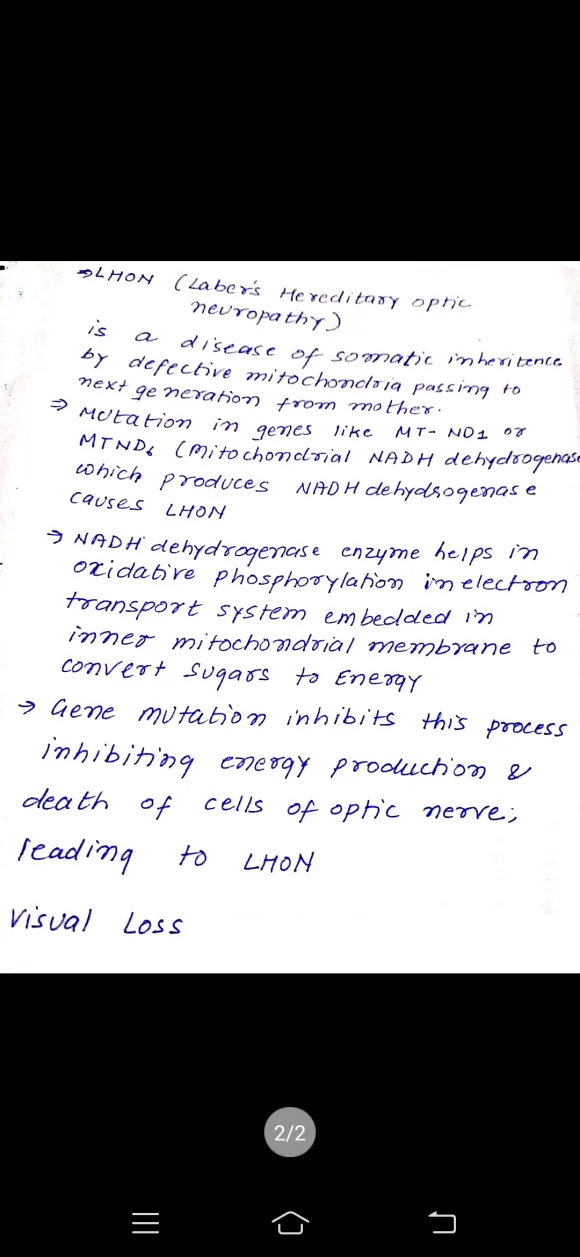 ⇒LHON (Laber's Hereditary optic
neuropathy)
is a disease of somatic inheritence
by defective mitochondria passing to
next generation from mother.
⇒ Mutation in genes like MT-ND1 or
MTND6 (Mitochondrial NADH dehydrogenase
which produces NADH dehydrogenase
causes LHON
→ NADH dehydrogenase enzyme helps in
oxidative phosphorylation in electron
transport system embedded in
inner mitochondrial membrane to
convert sugars to Energy
→ Gene mutation inhibits this process
inhibiting energy production &
death of cells of optic nerve;
leading to LHON
Visual Loss
2/2